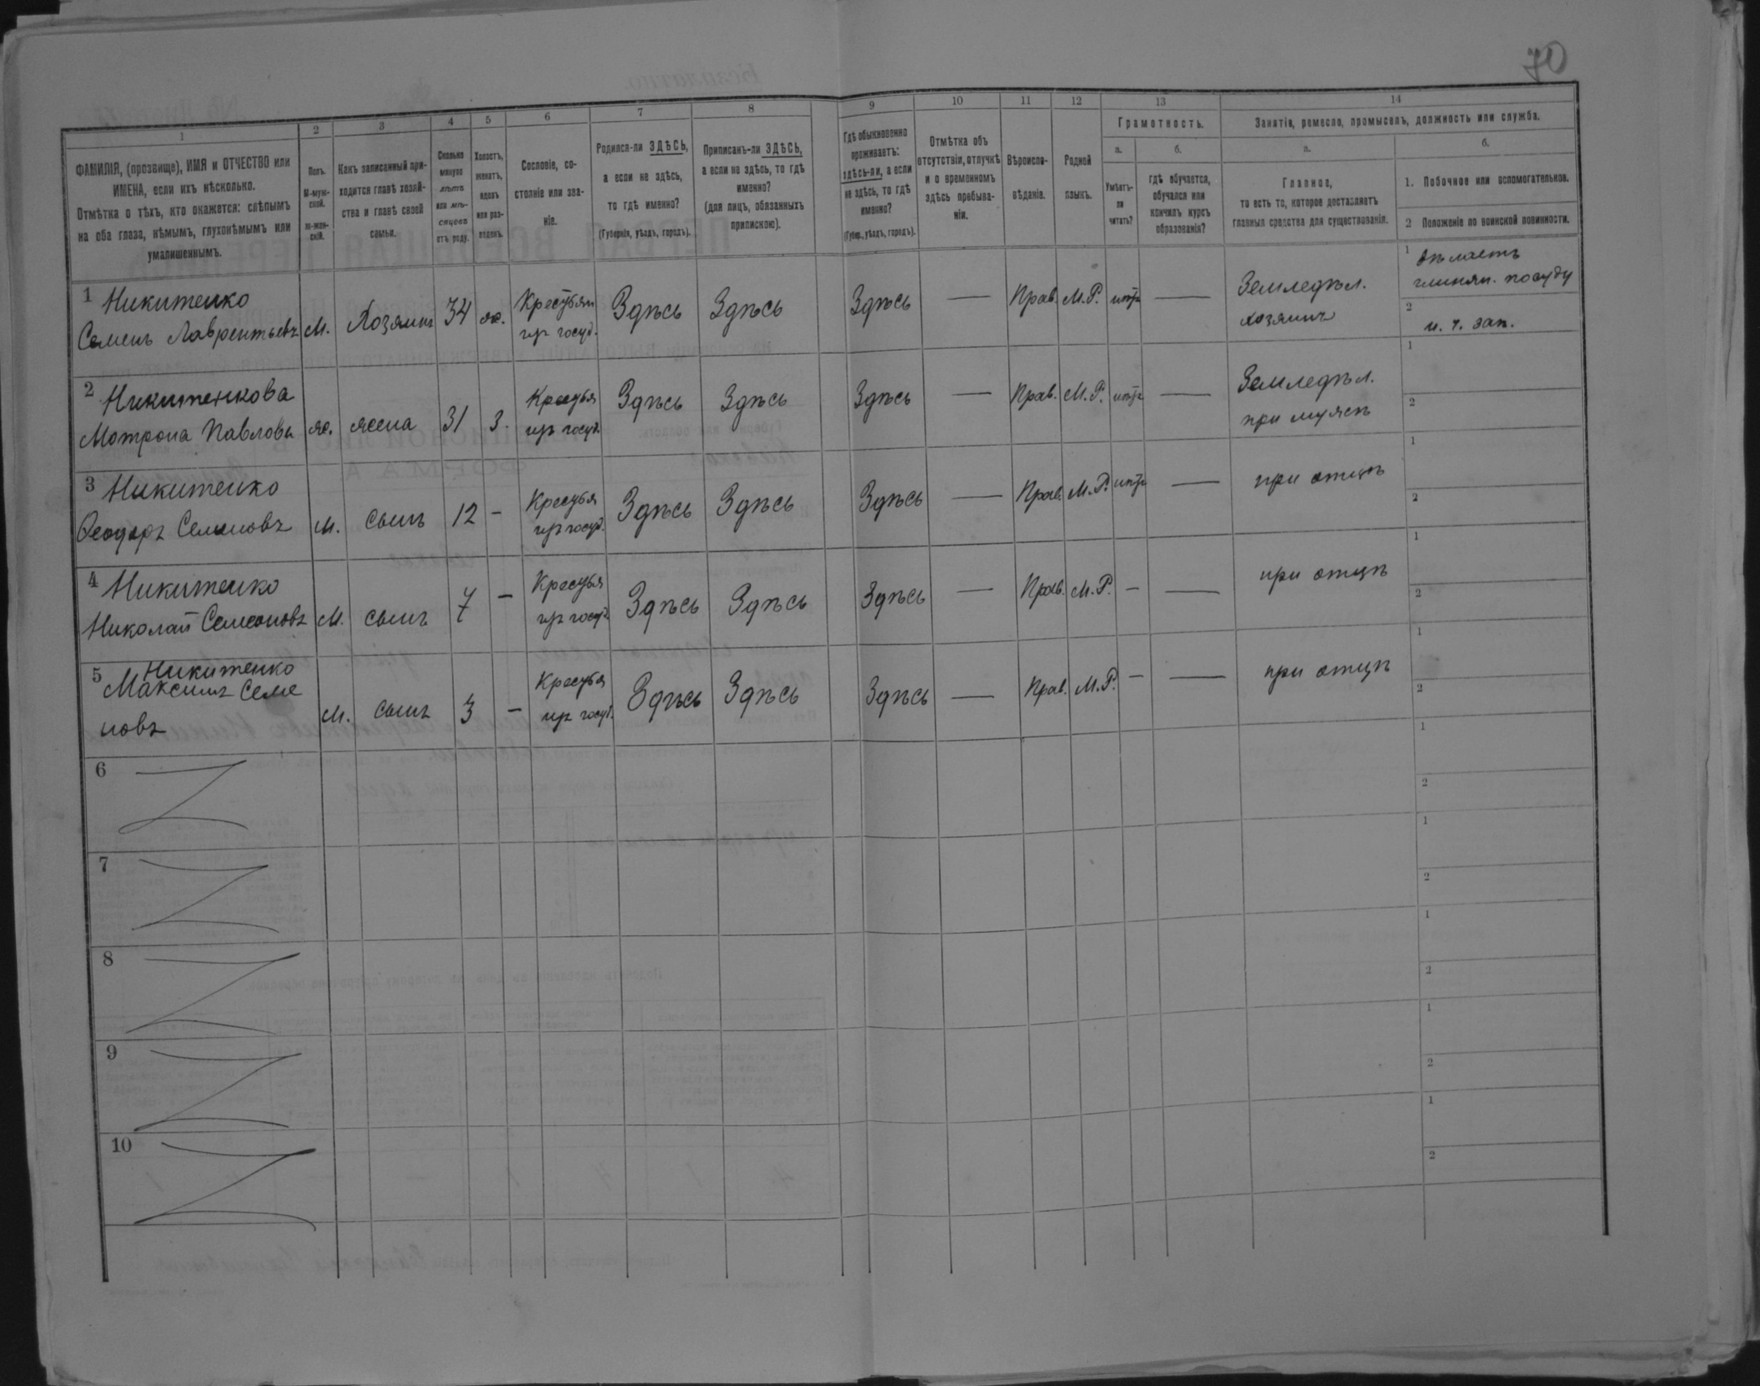 70
1 2 3 4 5 6 7 8 9 10 11 12 13 14
ФАМИЛІЯ, (прозвище), ИМЯ и ОТЧЕСТВО или
ИМЕНА, если ихъ нѣсколько.
Отмѣтка о тѣхъ, кто окажется: слѣпымъ
на оба глаза, нѣмымъ, глухонѣмымъ или
умалишеннымъ.
Полъ.
М-муж-
ской.
Ж-жен-
скій.
Какъ записанный при-
ходится главѣ хозяй-
ства и главѣ своей
семьи.
Сколько
минуло
лѣтъ
или мѣ-
сяцевъ
отъ роду.
Холостъ,
женатъ,
вдовъ
или раз-
веденъ.
Сословіе, со-
стояніе или зва-
ніе.
Родился-ли ЗДѢСЬ,
а если не здѣсь,
то гдѣ именно?
(Губернія, уѣздъ, городъ).
Приписанъ-ли ЗДѢСЬ,
а если не здѣсь, то гдѣ
именно?
(для лицъ, обязанныхъ
припискою).
Гдѣ обыкновенно
проживаетъ:
здѣсь-ли, а если
не здѣсь, то гдѣ
именно?
(Губер., уѣздъ, городъ).
Отмѣтка объ
отсутствіи, отлучкѣ
и о временномъ
здѣсь пребыва-
ніи.
Вѣроиспо-
вѣданіе.
Родной
языкъ.
Грамотность.
а.
Умѣетъ-
ли
читать?
б.
гдѣ обучается,
обучался или
кончилъ курсъ
образованія?
Занятіе, ремесло, промыселъ, должность или служба.
а.
Главное,
то есть то, которое доставляетъ
главныя средства для существованія.
б.
1. Побочное или вспомогательное.
2 Положеніе по воинской повинности.
1 Никитенко
Семенъ Лаврентьевъ М. Хозяинъ 34 ж. Крестьян изъ госуд. Здѣсь Здѣсь Здѣсь — Прав. М.Р. — Земледѣл. хозяинъ
1 дѣлаетъ глинян. посуду
2 н. ч. зап.
2 Никитенкова
Мотрона Павлова ж. жена 31 З. изъ госуд. Здѣсь Здѣсь Здѣсь — Прав. М.Р. — Земледѣл. при мужѣ
1
2
3 Никитенко
Феодоръ Семеновъ М. сынъ 12 - изъ госуд. Здѣсь Здѣсь Здѣсь — Прав. М.Р. — при отцѣ
1
2
4 Никитенко
Николай Семеновъ М. сынъ 7 - изъ госуд. Здѣсь Здѣсь Здѣсь — Прав. М.Р. - — при отцѣ
1
2
5 Никитенко
Максимъ Семе
новъ М. сынъ 3 - изъ госуд. Здѣсь Здѣсь Здѣсь — Прав. М.Р. - — при отцѣ
1
2
6
1
2
7
1
2
8
1
2
9
1
2
10
1
2